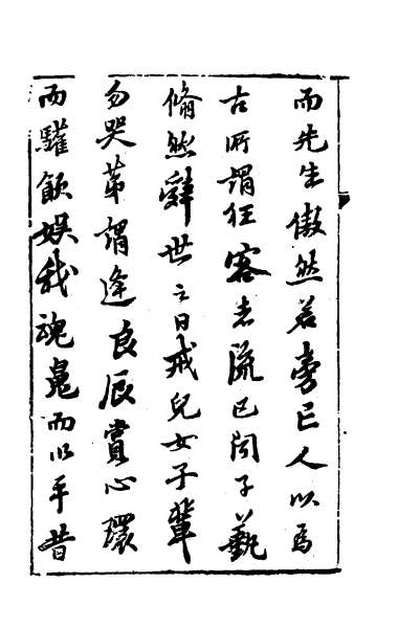 而先生傲然若旁亡人以爲
古所謂狂客者流已聞子藝
翛然辭世之日戒兒女子輩
勿哭苐謂逢良辰賞心環
而驩飲娛我魂鬼而以平昔